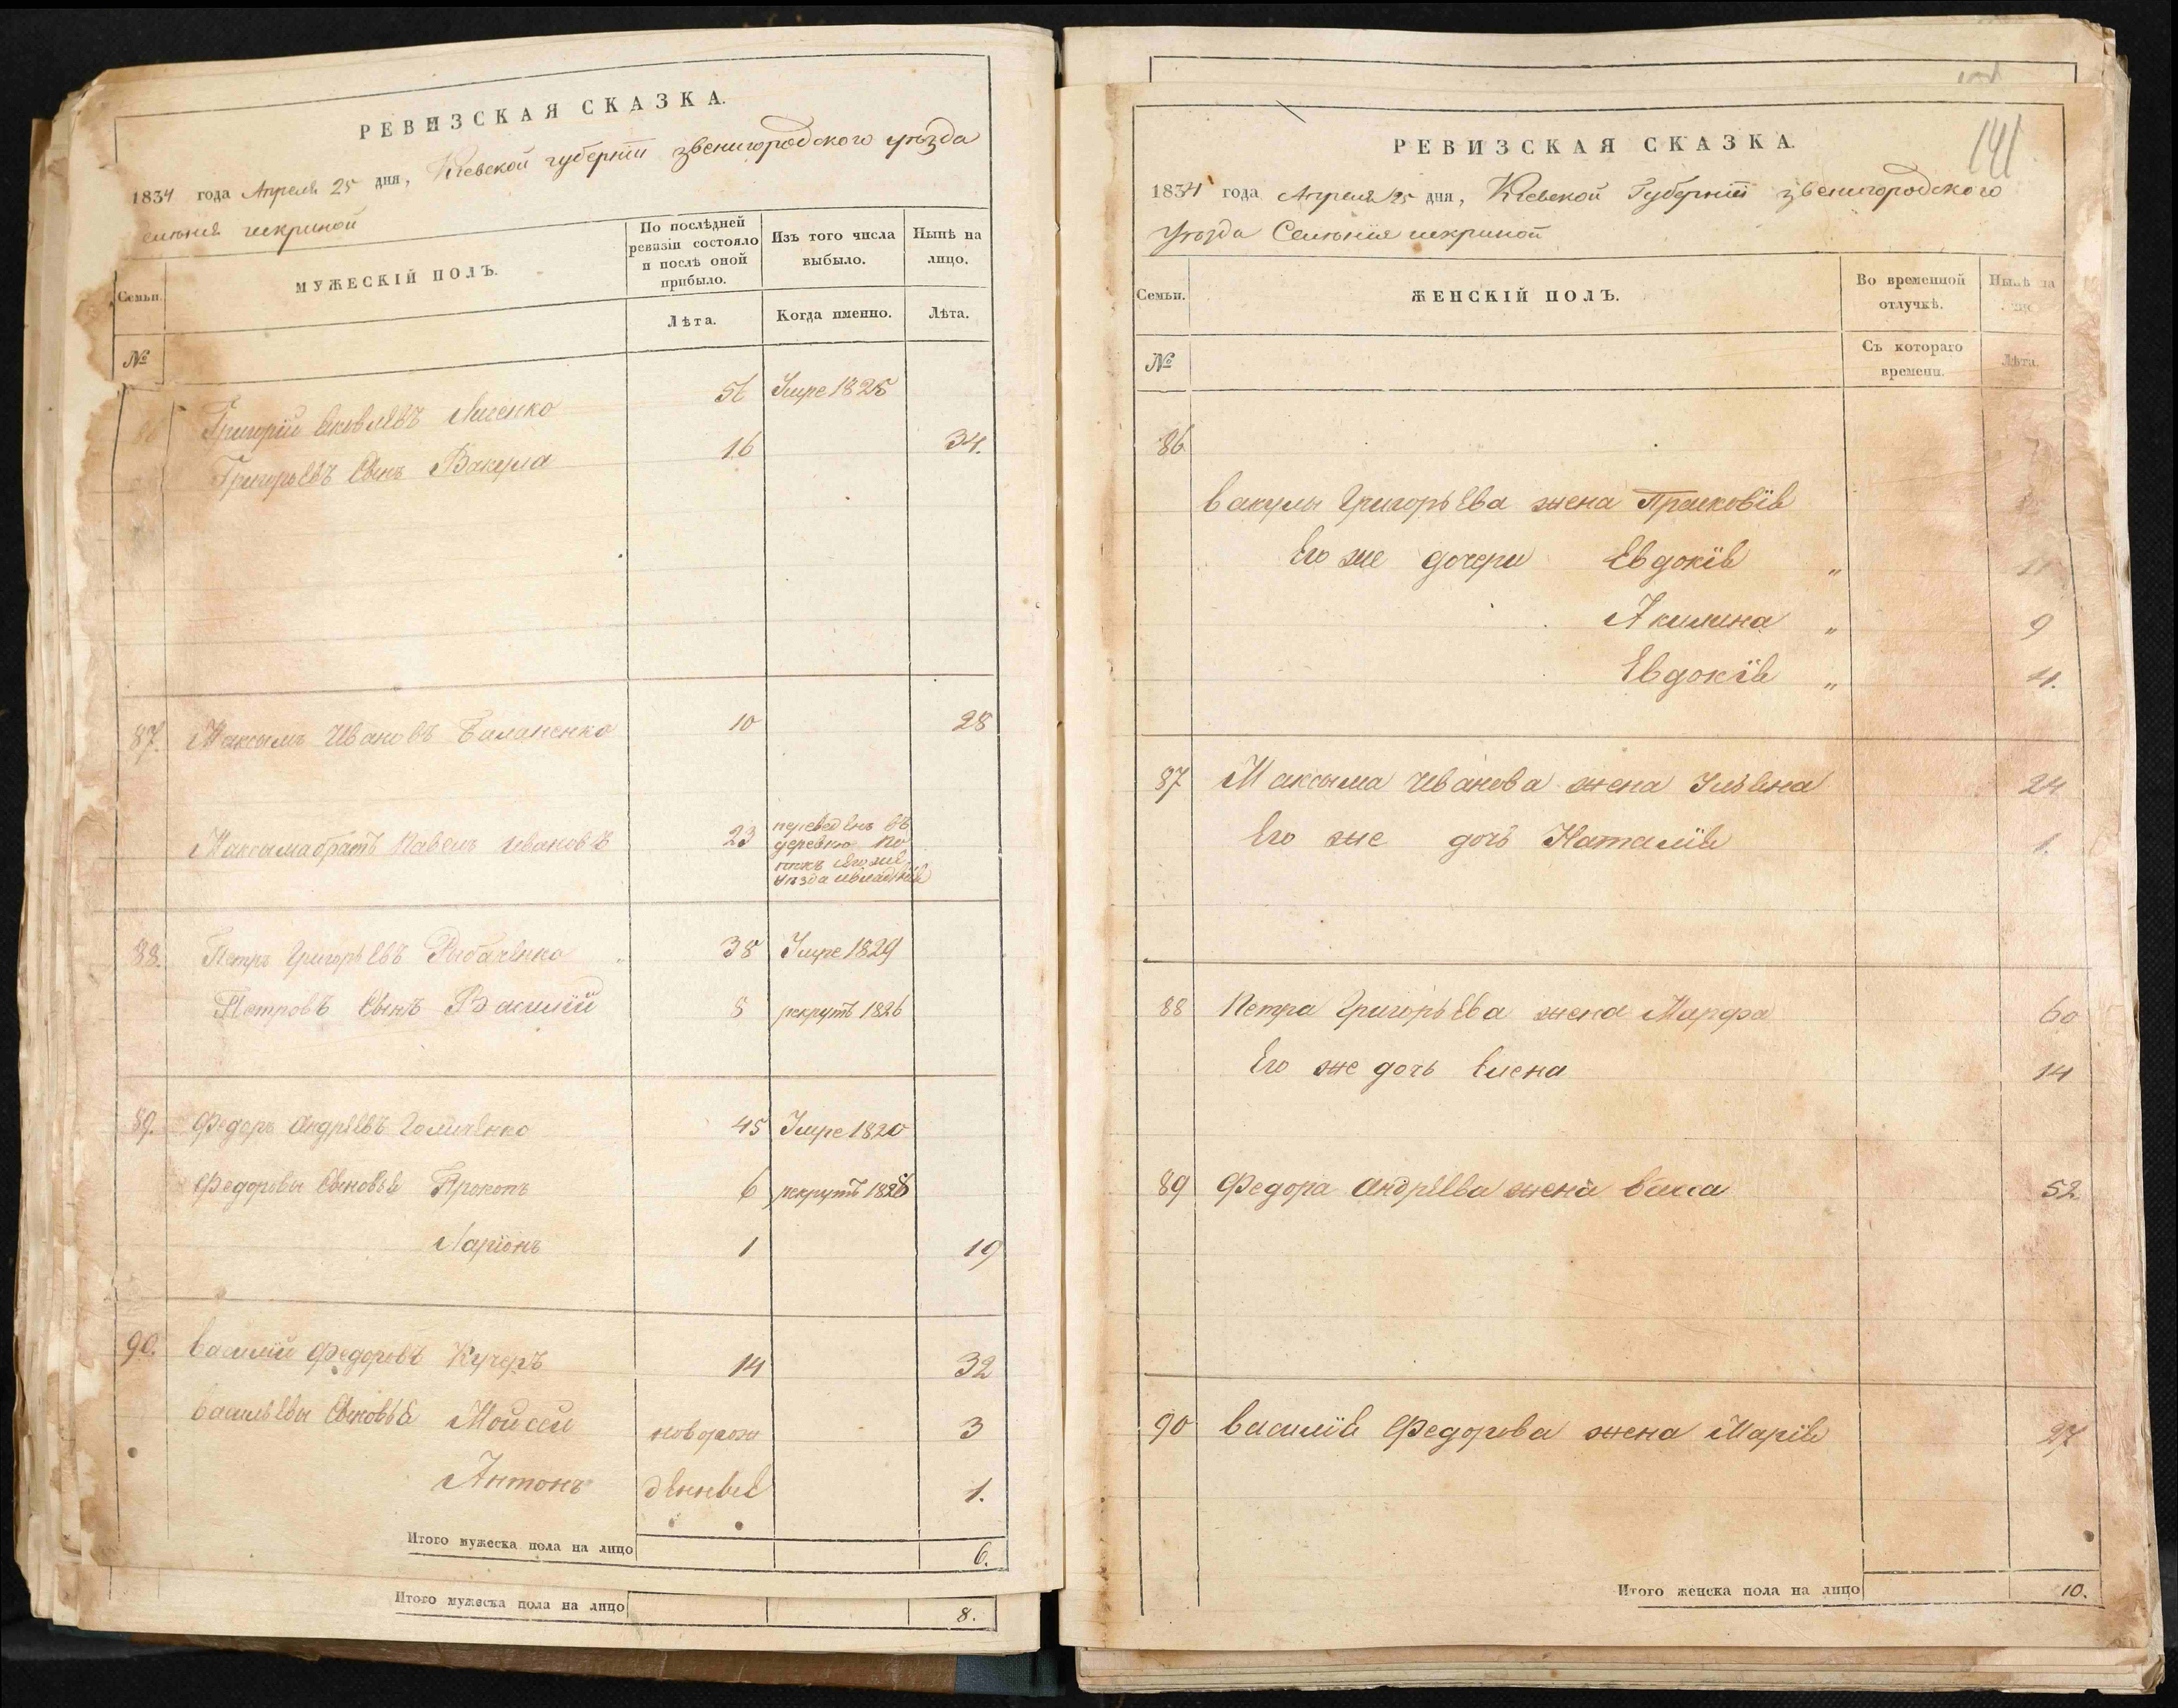 РЕВИЗСКАЯ СКАЗКА.
1834 года Апреля 25 дня, Кіевской губерніи звенигородского уѣзда
селѣнія
Семьи.
МУЖЕСКІЙ ПОЛЪ.
По послѣдней ревизіи состояло и послѣ оной прибыло.
Изъ того числа выбыло.
Нынѣ на лицо.
№
Лѣта.
Когда именно.
Лѣта.
86 Григорій Яковлевъ Лисенко 56 Умре 1825
Григорьевъ Сынъ Вакула 16 34.
87. Максымъ Ивановъ 10 28
Максыма братъ Павелъ Ивановъ 23 переведенъ въ
деревню
уѣзда
88. Петръ Григорьевъ Рыбаченко 38 Умре 1829
Петровъ Сынъ Василій 5 рекрутъ 1826
89. Федоръ Андрѣевъ 45 Умре 1820
Федоровы Сыновья Прокопъ 6 рекрутъ 1828
Ларіонъ 1 19
90. Василій Федоровъ Кучеръ 14 32
Васильевы Сыновья Мойсей новорож 3
Антонъ денные 1.
Итого мужеска пола на лицо 6.
Итого мужеска пола на лицо 8.
141
РЕВИЗСКАЯ СКАЗКА.
1834 года Апреля 25 дня, Кіевской Губерніи звенигородского
уѣзда Селѣнія
Семьи.
ЖЕНСКІЙ ПОЛЪ.
Во временной отлучкѣ.
Нынѣ на лицо
№
Съ котораго времени.
Лѣта.
86
Вакулы Григорьева жена Прасковія
Его же дочери Евдокія " 11
Акилина " 9
Евдокія " 4.
87 Максыма Иванова жена Ульяна 24
Его же дочь Наталія 1.
88 Петра Григорьева жена Марфа 60
Его же дочь Елена 14
89 Федора Андрѣева жена Васса 52
90 Василія Федорова жена Марія 27
Итого женска пола на лицо 10.